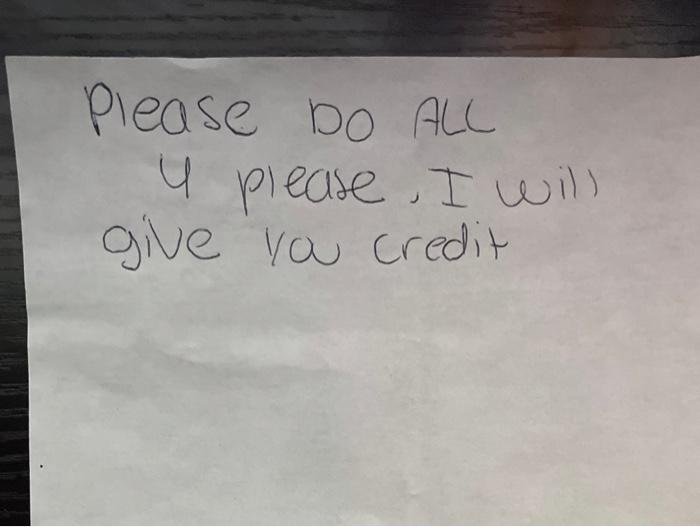 Please DO ALL
4 please, I will
give you credit